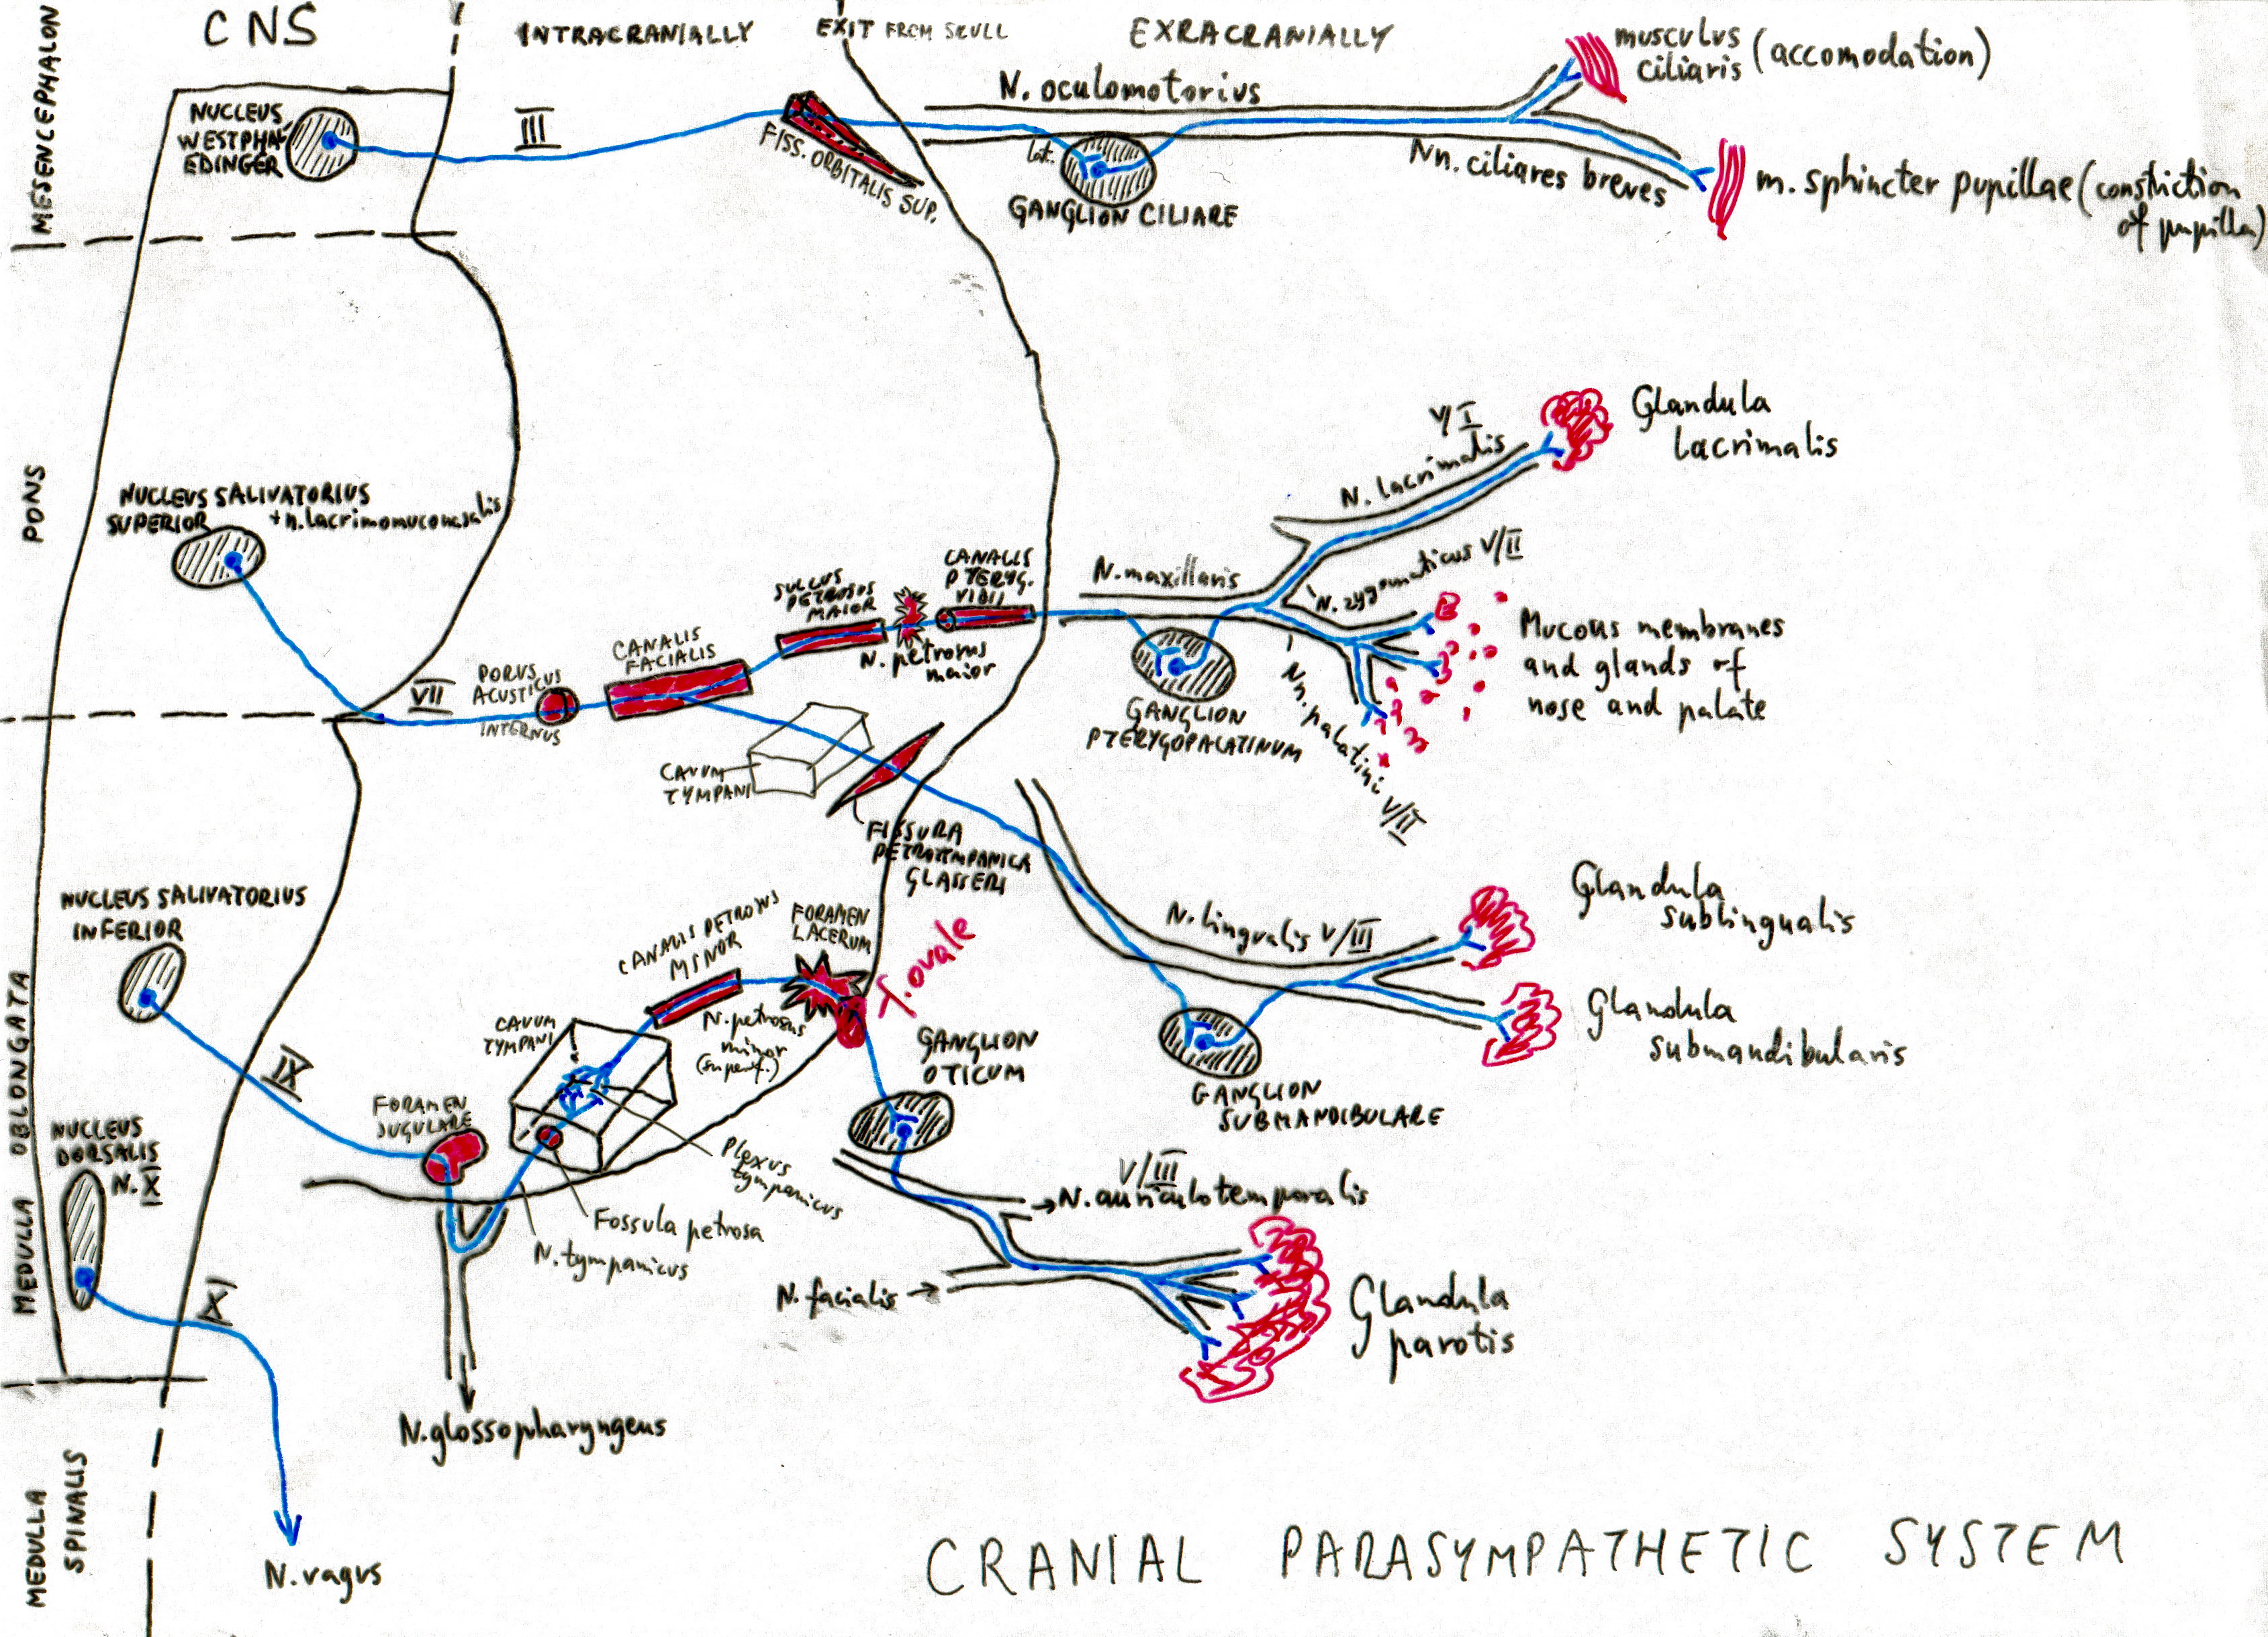 CNS
INTRACRANIALLY
EXIT FROM SKULL
EXRACRANIALLY
MESENCEPHALON
NUCLEUS
WESTPHA
EDINGER
III
FISS. ORBITALIS SUP.
N. oculomotorius
GANGLION CILIARE
Nn. ciliares breves
musculus
ciliaris (accomodation)
m. sphincter pupillae (constriction
of pupilla)
PONS
NUCLEUS SALIVATORIUS
SUPERIOR + n. lacrimomuconasalis
VII
PORUS
ACUSTICUS
INTERNUS
CANALIS
FACIALIS
SULCUS
PETROSUS
MAIOR
N. petrosus
maior
CANALIS
PTERYG.
VIDII
N. maxillaris
GANGLION
PTERYGOPALATINUM
V/I
N. lacrimalis
N. zygomaticus V/II
Nn. palatini V/II
Glandula
lacrimalis
Mucous membranes
and glands of
nose and palate
CAVUM
TYMPANI
FISSURA
PETROTYMPANICA
GLASSERI
N. lingualis V/III
Glandula
sublingualis
Glandula
submandibularis
GANGLION
SUBMANDIBULARE
MEDULLA OBLONGATA
NUCLEUS SALIVATORIUS
INFERIOR
IX
FORAMEN
JUGULARE
CAVUM
TYMPANI
CANALIS PETROSUS
MINOR
N. petrosus
minor
(superf.)
FORAMEN
LACERUM
f. ovale
GANGLION
OTICUM
Plexus
tympanicus
Fossula petrosa
N. tympanicus
V/III
→ N. auriculotemporalis
N. facialis →
Glandula
parotis
NUCLEUS
DORSALIS
N. X
X
N. glossopharyngeus
MEDULLA
SPINALIS
N. vagus
CRANIAL PARASYMPATHETIC SYSTEM